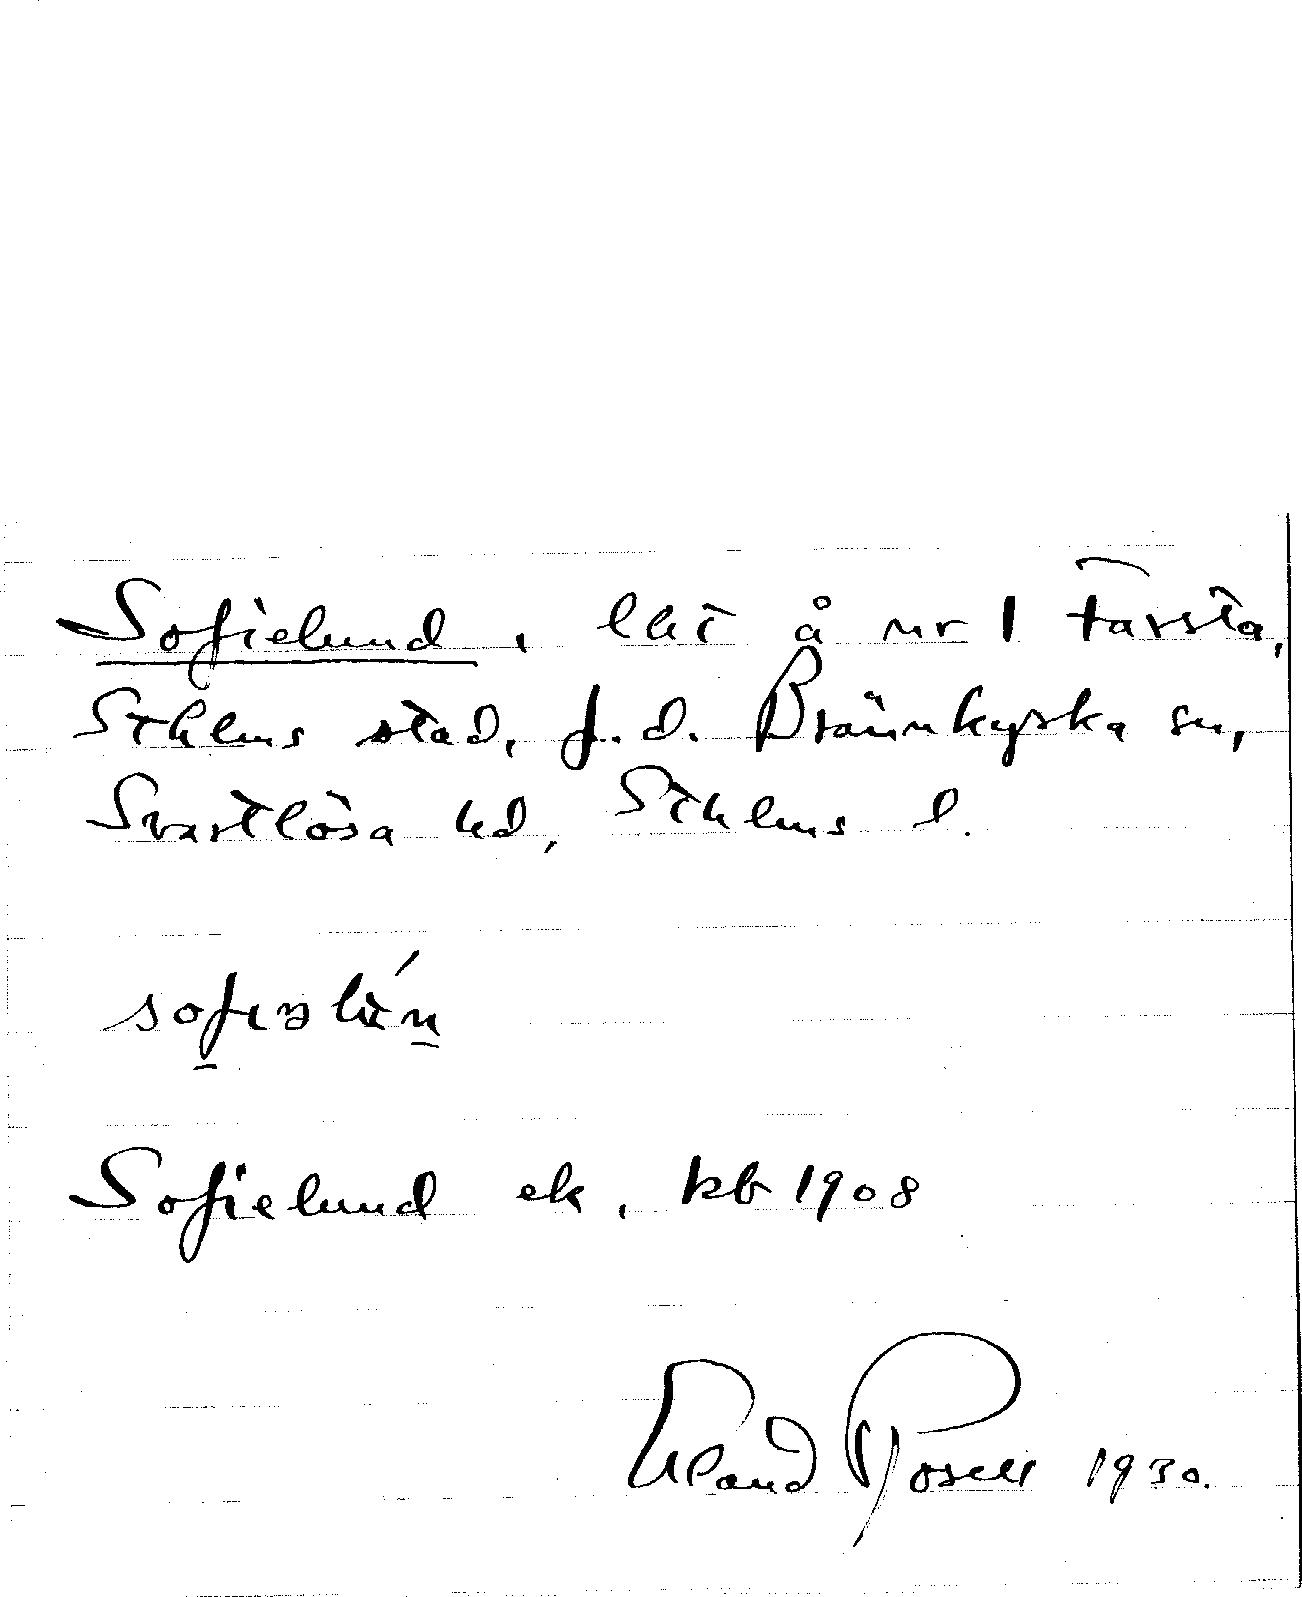 Sofielund, lht å nr 1 Farsta,
Sthlms stad, f.d. Brännkyrka sn,
Svartlösa hd, Sthlms l.
Sofielund ek, kb 1908
Erland Rosell 1930.